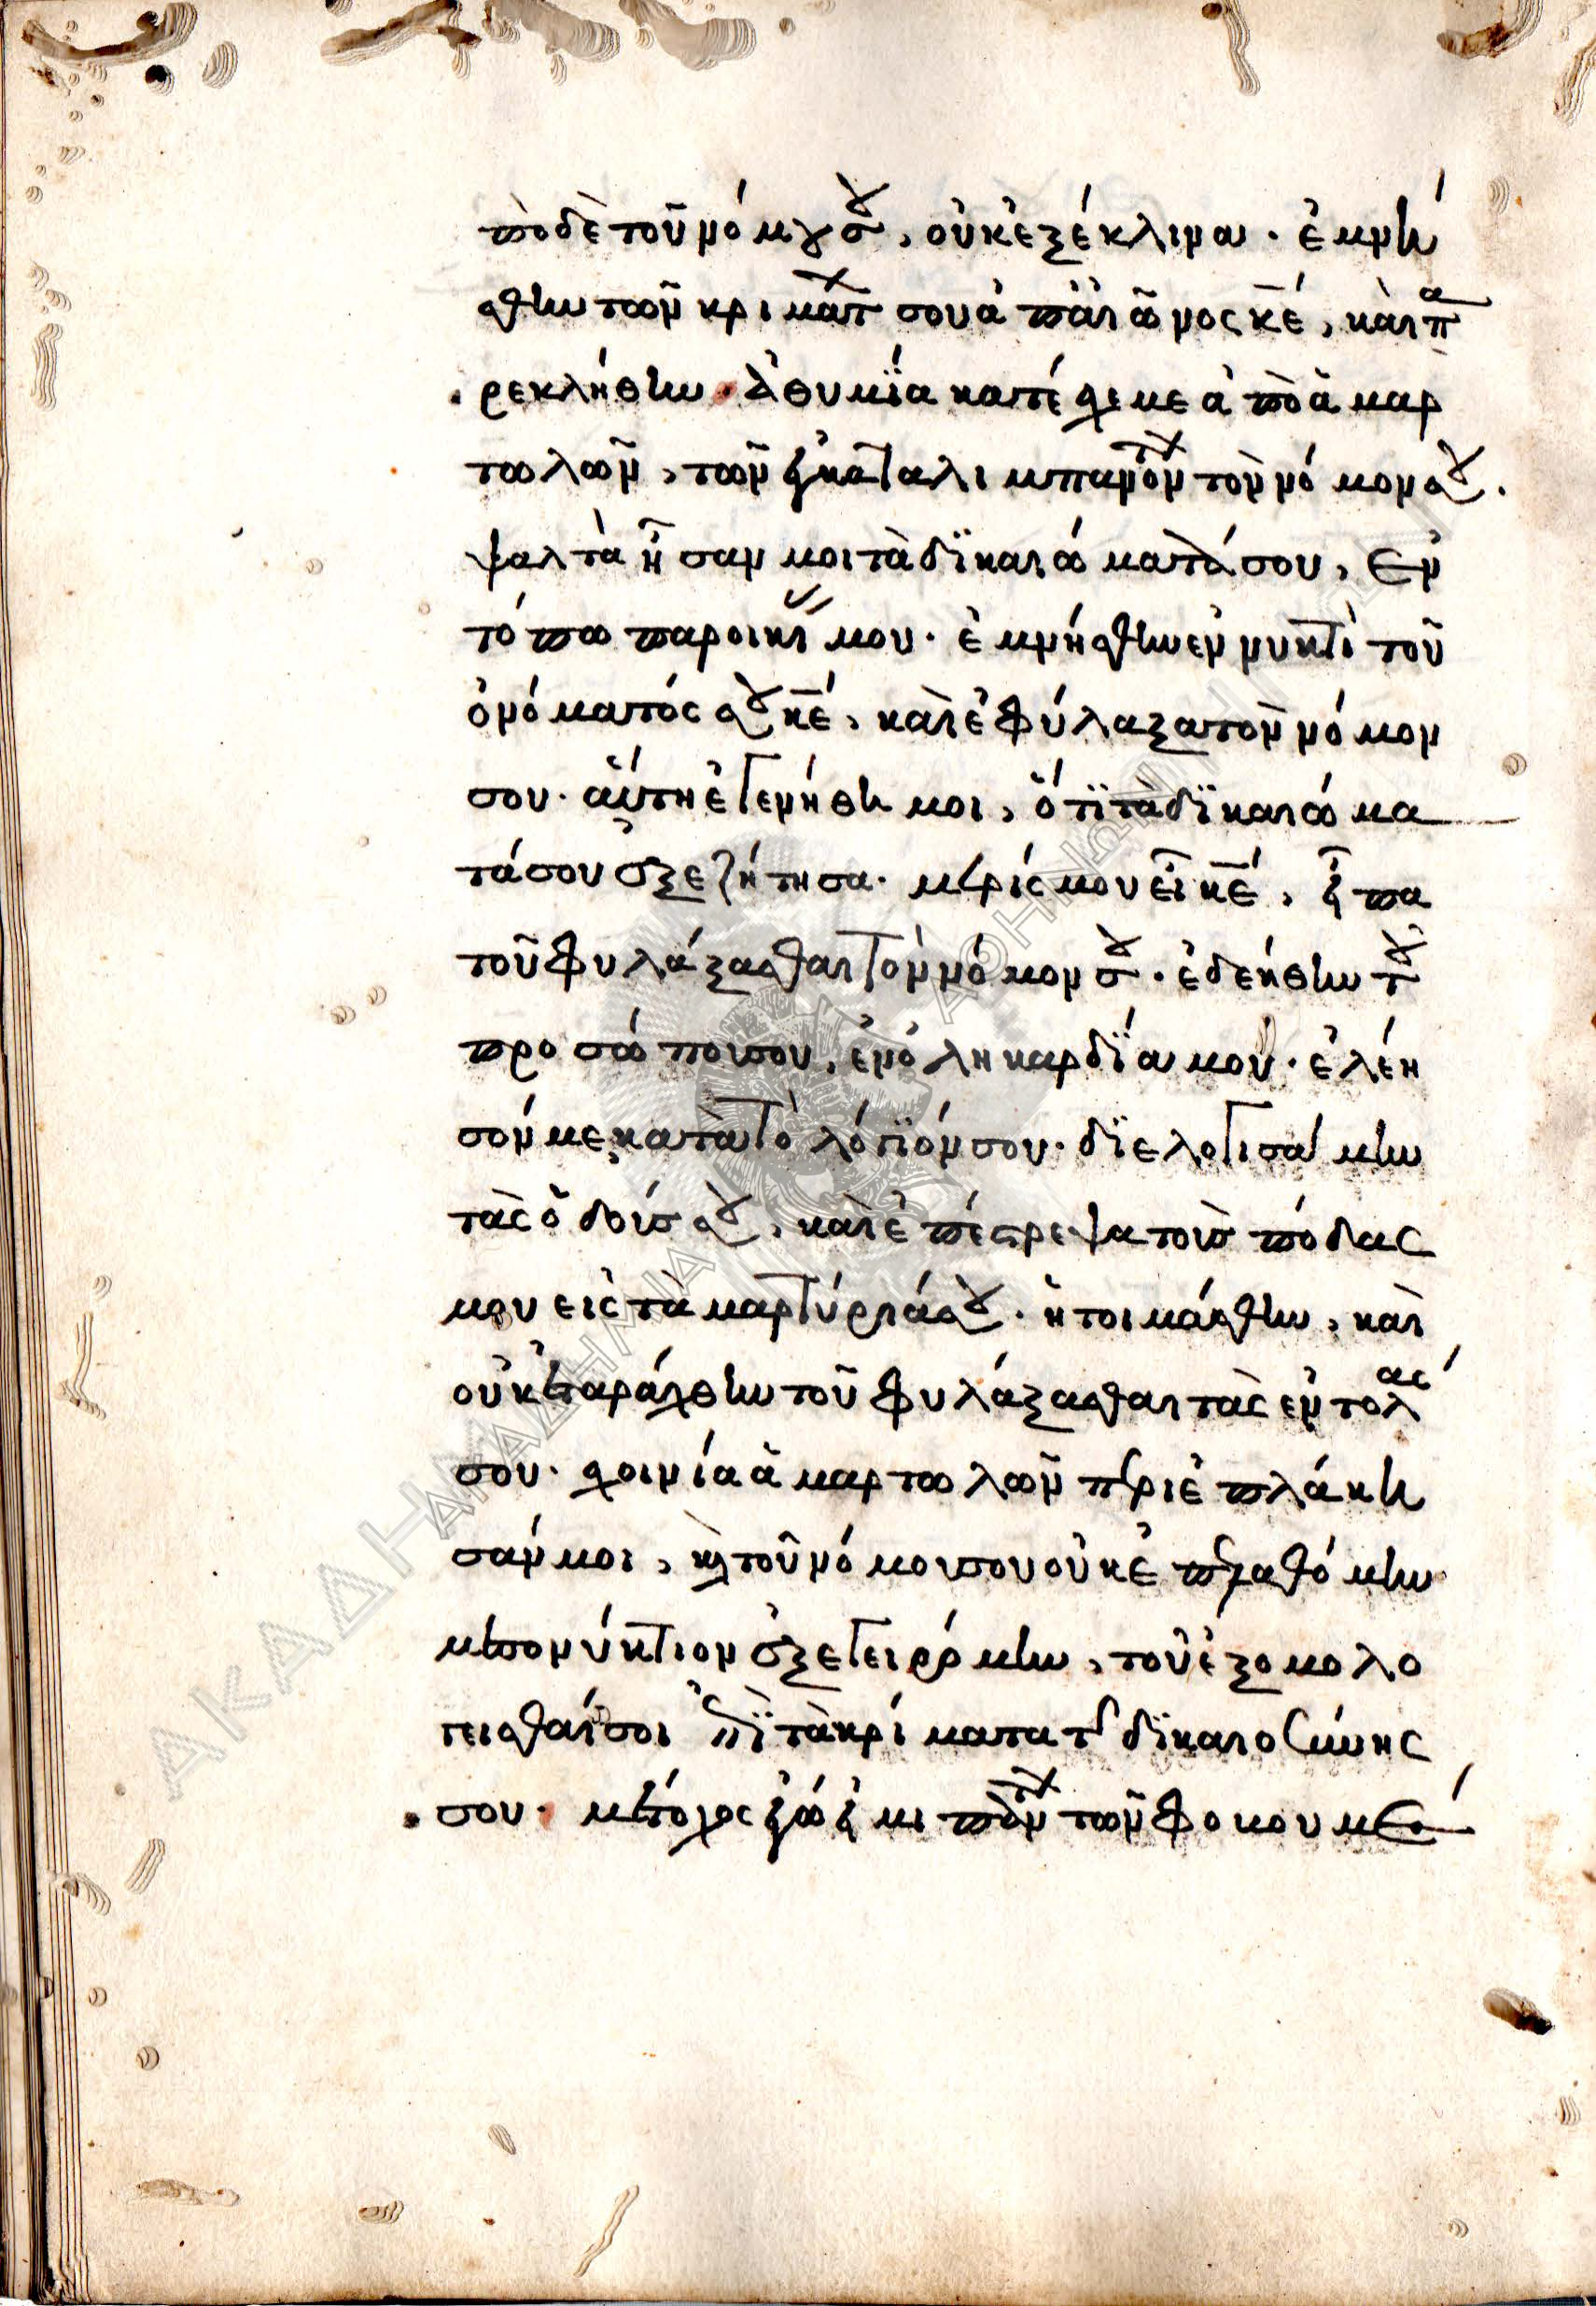 πὸ δὲ τοῦ νόμου σου, οὐκ ἐξέκλινα. ἐμνή
σθην τῶν κριμάτων σου ἀπ' αἰῶνος κ̅ε̅, καὶ πα
ρεκλήθην. Ἀθυμία κατέσχε με ἀπὸ ἁμαρ
τωλῶν, τῶν ἐγκαταλιμπανόντων τὸν νόμον σου.
ψαλτὰ ἦσάν μοι τὰ δικαιώματά σου, ἐν
τόπω παροικίας μου. ἐμνήσθην ἐν νυκτὶ τοῦ
ὀνόματός σου κ̅ε̅, καὶ ἐφύλαξα τὸν νόμον
σου. αὕτη ἐγενήθη μοι, ὅτι τὰ δικαιώμα
τά σου ἐξεζήτησα. μερίς μου εἶ κ̅ε̅, εἶπα
τοῦ φυλάξασθαι τὸν νόμον σου. ἐδεήθην τοῦ
προσώπου σου, ἐν ὅλη καρδία μου. ἐλέη
σόν με κατὰ τὸ λόγιόν σου. διελογισάμην
τὰς ὁδούς σου, καὶ ἐπέστρεψα τοὺς πόδας
μου εἰς τὰ μαρτύριά σου. ἡτοιμάσθην, καὶ
οὐκ ἐταράχθην τοῦ φυλάξασθαι τὰς ἐντολάς
σου. σχοινία ἁμαρτωλῶν περιεπλάκη
σάν μοι, καὶ τοῦ νόμου σου οὐκ ἐπελαθόμην
μεσονύκτιον ἐξεγειρόμην, τοῦ ἐξομολο
γεῖσθαί σοι ἐπὶ τὰ κρίματα τῆς δικαιοσύνης
σου. μέτοχος ἐγώ εἰμι πάντων τῶν φοβουμέ